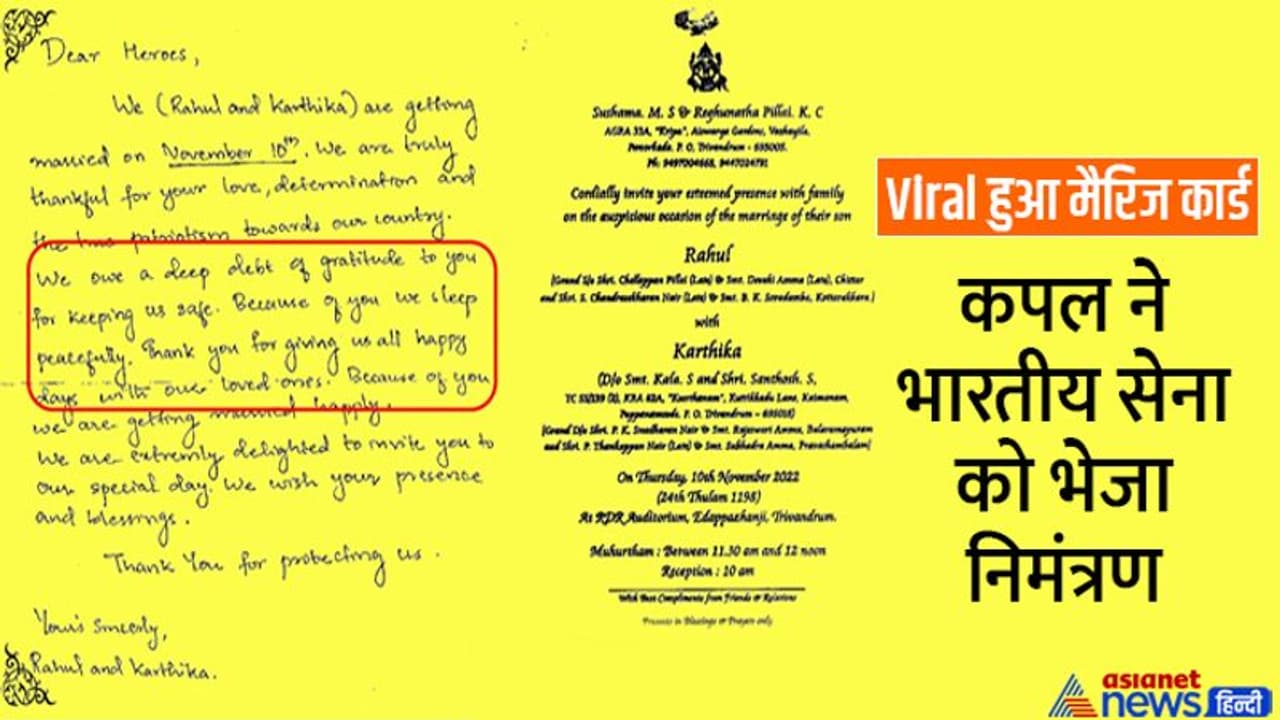 Dear Heroes,
We (Rahul and Karthika) are getting
married on November 10th. We are truly
thankful for your love, determination and
the true patriotism towards our country.
We owe a deep debt of gratitude to you
for keeping us safe. Because of you we sleep
peacefully. Thank you for giving us all happy
days with our loved ones. Because of you
we are getting married happily.
We are extremely delighted to invite you to
our special day. We wish your presence
and blessings.
Thank You for protecting us.
Your's sincerly,
Rahul and Karthika.
Sushama. M. S & Reghunatha Pillai. K. C
AGRA 33A, "Kripa", Aiswarya Gardens, Vazhayila,
Peroorkada. P. O, Trivandrum - 695005.
Ph: 9497004668, 9447024791
Cordially invite your esteemed presence with family
on the auspicious occasion of the marriage of their son
Rahul
(Grand S/o Shri. Chellappan Pillai (Late) & Smt. Devaki Amma (Late), Chittar
and Shri. S. Chandrasekharan Nair (Late) & Smt. B. K. Kottarakkara)
with
Karthika
(D/o Smt. Kala. S and Shri. Santhosh. S,
KRA 62A, Lane, Kaimanam,
Pappanamcode. P. O. Trivandrum - 695018)
(Grand D/o Shri. P. K. Sreedharan Nair & Smt. Rajeswari Amma, Balaramapuram
and Shri. P. Thankappan Nair (Late) & Smt. Subhadra Amma, Pravachambalam)
On Thursday, 10th November 2022
(24th Thulam 1198)
At RDR Auditorium, Edappazhanji, Trivandrum.
Muhurtham : Between 11.30 am and 12 noon
Reception : 10 am
With Best Compliments from Friends & Relations
Presents in Blessings & Prayers only
Viral हुआ मैरिज कार्ड
कपल ने
भारतीय सेना
को भेजा
निमंत्रण
asianet
news हिन्दी